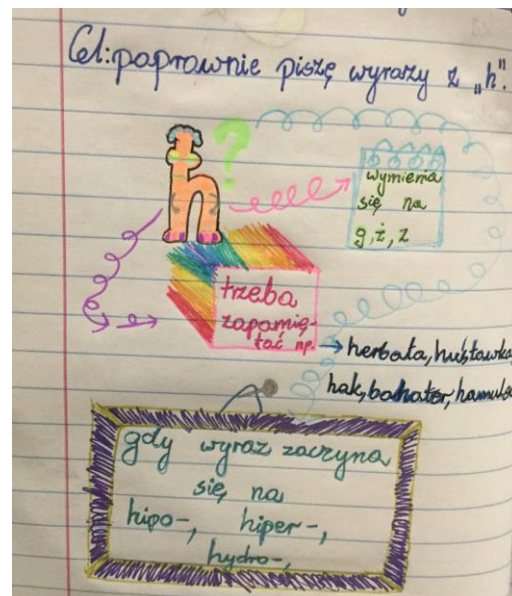 Cel: poprawnie piszę wyrazy z „h".
h ?
wymienia
się na
g, ż, z
trzeba
zapamię-
tać np.
herbata, huśtawka,
hak, bohater, hamulec
gdy wyraz zaczyna
się na
hipo-, hiper-,
hydro-,